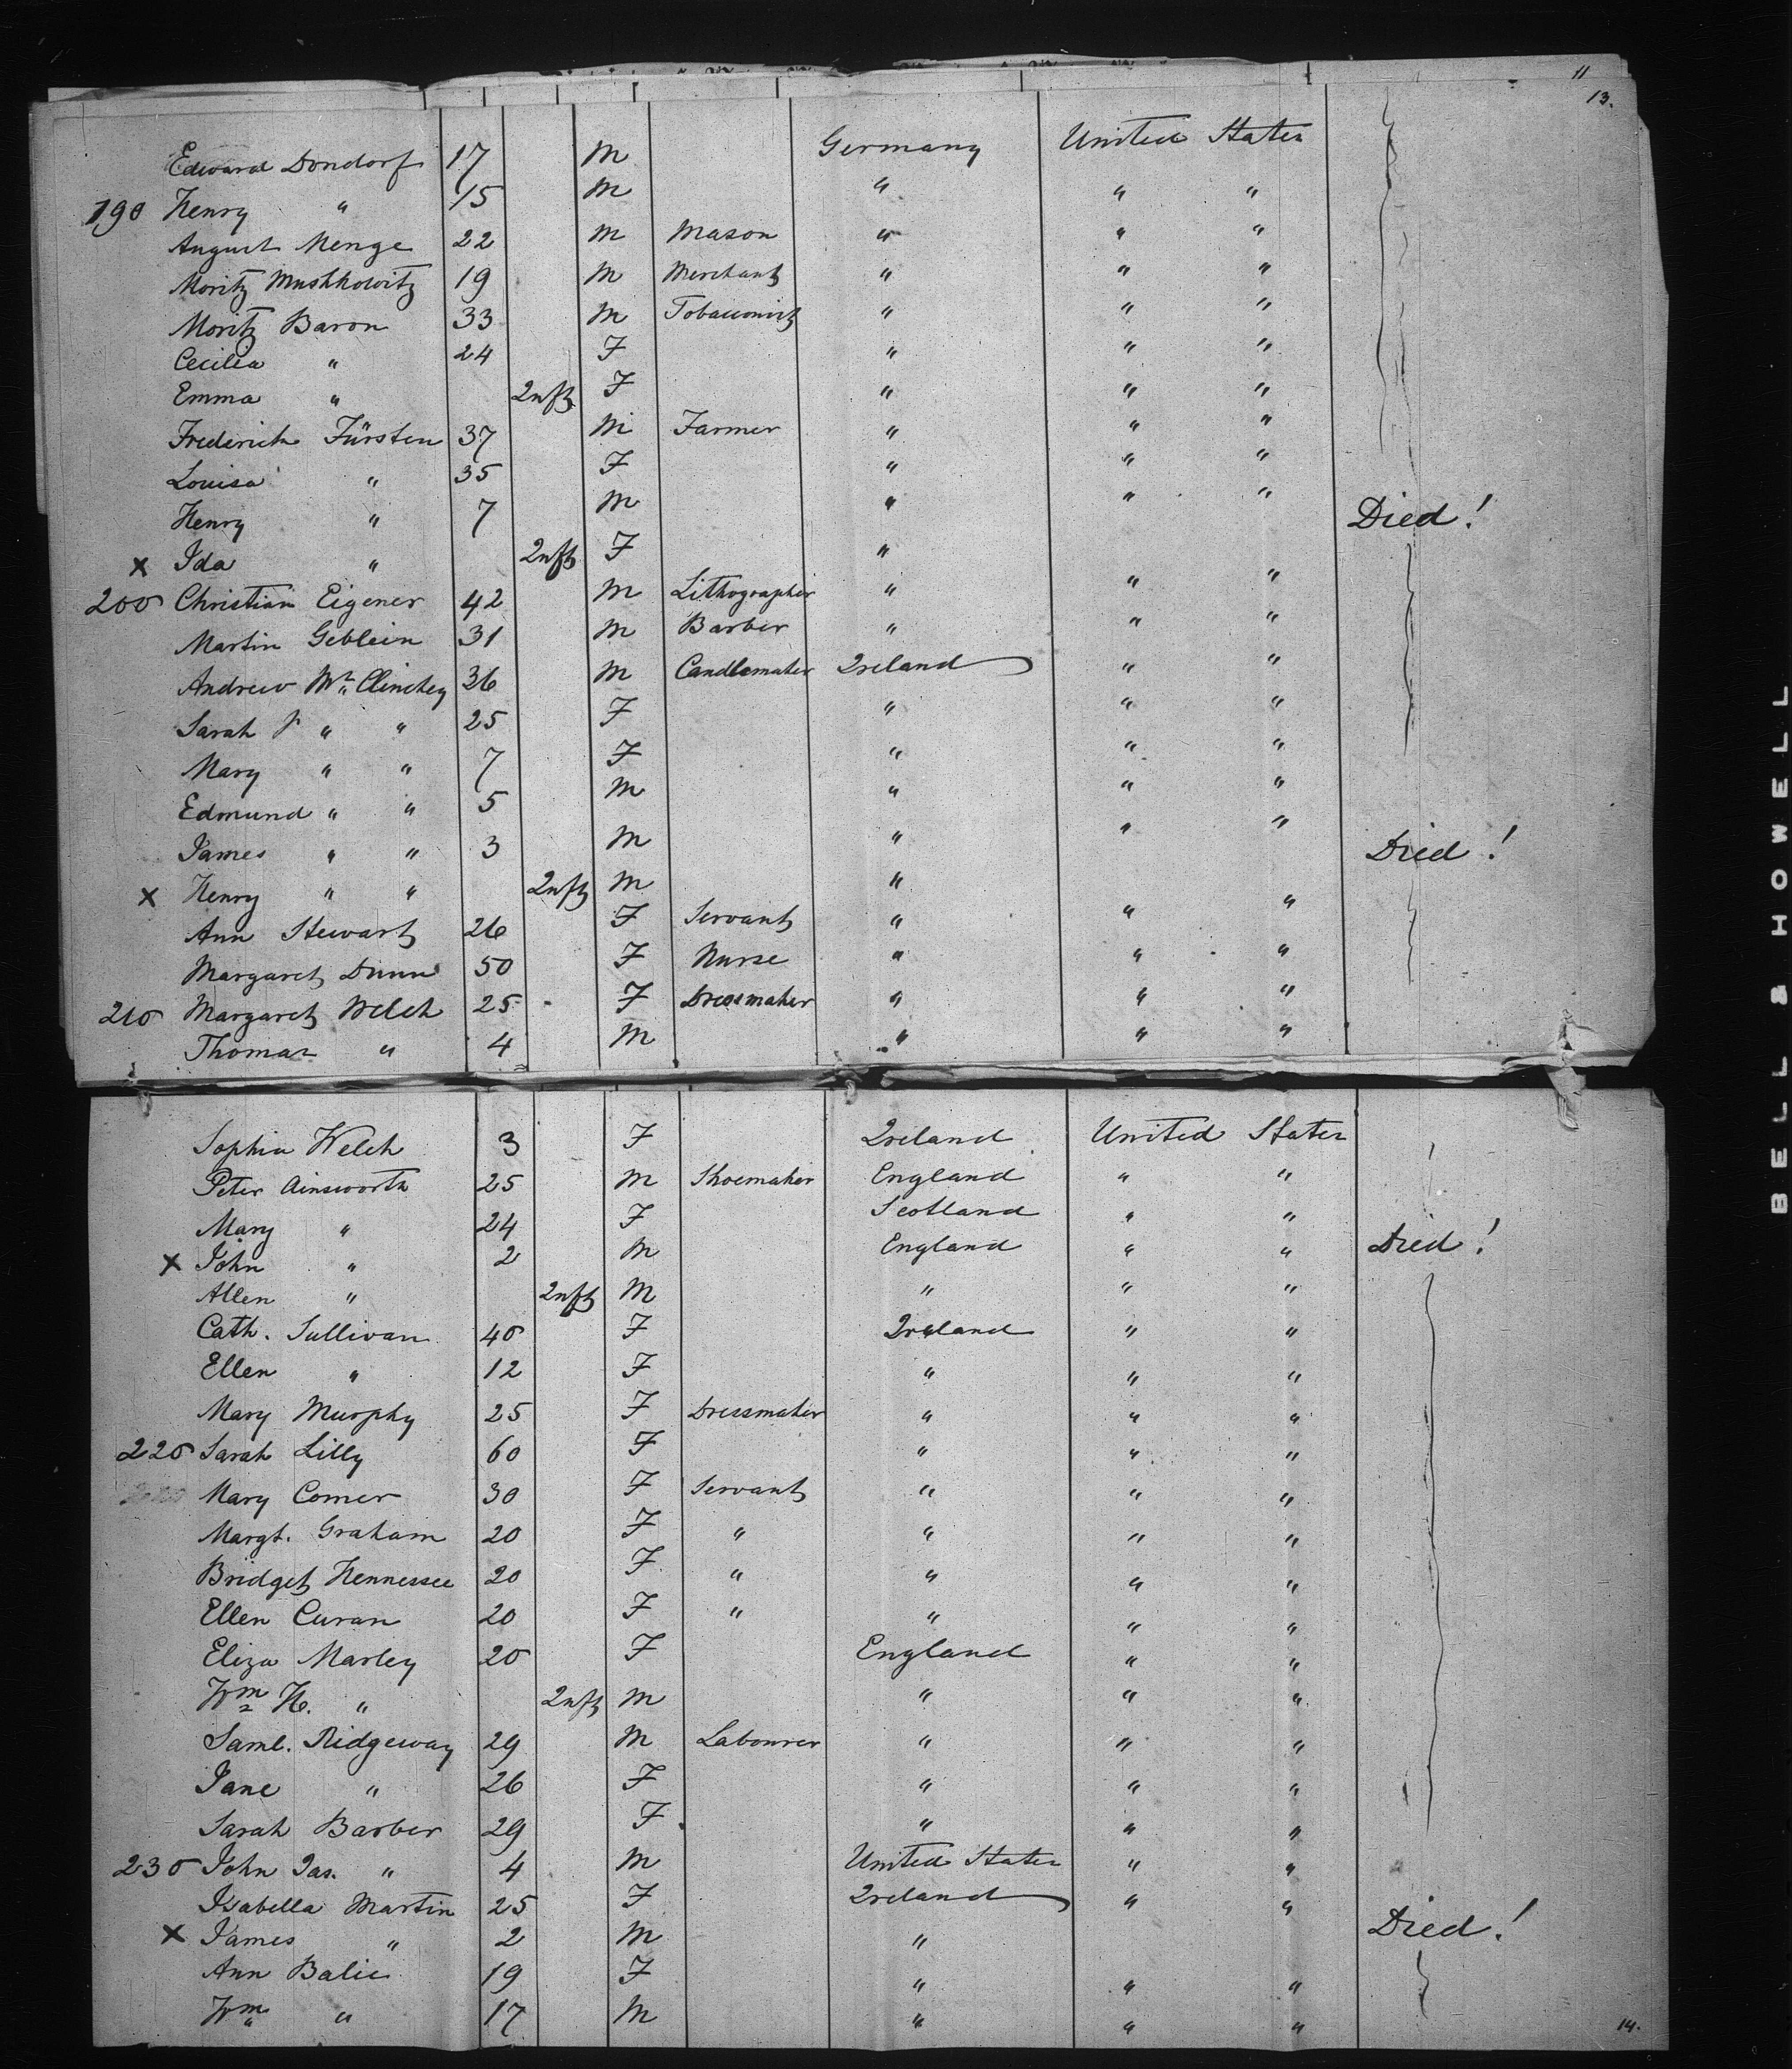 11
13.
Edward Dondorf 17 M Germany United States
190 Henry " 15 M " " "
August Menge 22 M Mason " " "
Moritz Mushkowitz 19 M Merchant " " "
Moritz Baron 33 M Tobacconist " " "
Cecilia " 24 F " " "
Emma " Inft F " " "
Frederick Fürsten 37 M Farmer " " "
Louisa " 35 F " " "
Henry " 7 M " " "
x Ida " Inft F " Died!
200 Christian Eigener 42 M Lithographer " " "
Martin Geblein 31 M Barber " " "
Andrew Mc Clinchey 36 M Candlemaker Ireland " "
Sarah J " " 25 F " " "
Mary " " 7 F " " "
Edmund " " 5 M " " "
James " " 3 M " " "
x Henry " " Inft M " Died!
Ann Stewart 26 F Servant " " "
Margaret Dunn 50 F Nurse " " "
210 Margaret Welch 25 F Dressmaker " " "
Thomas " 4 M " " "
Sophia Welch 3 F Ireland United States
Peter Ainsworth 25 M Shoemaker England " "
Mary " 24 F Scotland " "
x John " 2 M England " " Died!
Allen " Inft M " " "
Cath. Sullivan 40 F Ireland " "
Ellen " 12 F " " "
Mary Murphy 25 F Dressmaker " " "
220 Sarah Lilly 60 F " " "
Mary Comer 30 F Servant " " "
Margt. Graham 20 F " " " "
Bridget Hennessee 20 F " " " "
Ellen Curan 20 F " " " "
Eliza Marley 20 F England " "
Wm H. " Inft M " " "
Saml. Ridgeway 29 M Labourer " " "
Jane " 26 F " " "
Sarah Barber 29 F " " "
230 John Jas. " 4 M United States " "
Isabella Martin 25 F Ireland " "
x James " 2 M " Died!
Ann Balie 19 F " " "
Wm " 17 M " " "
14.
BELL & HOWELL